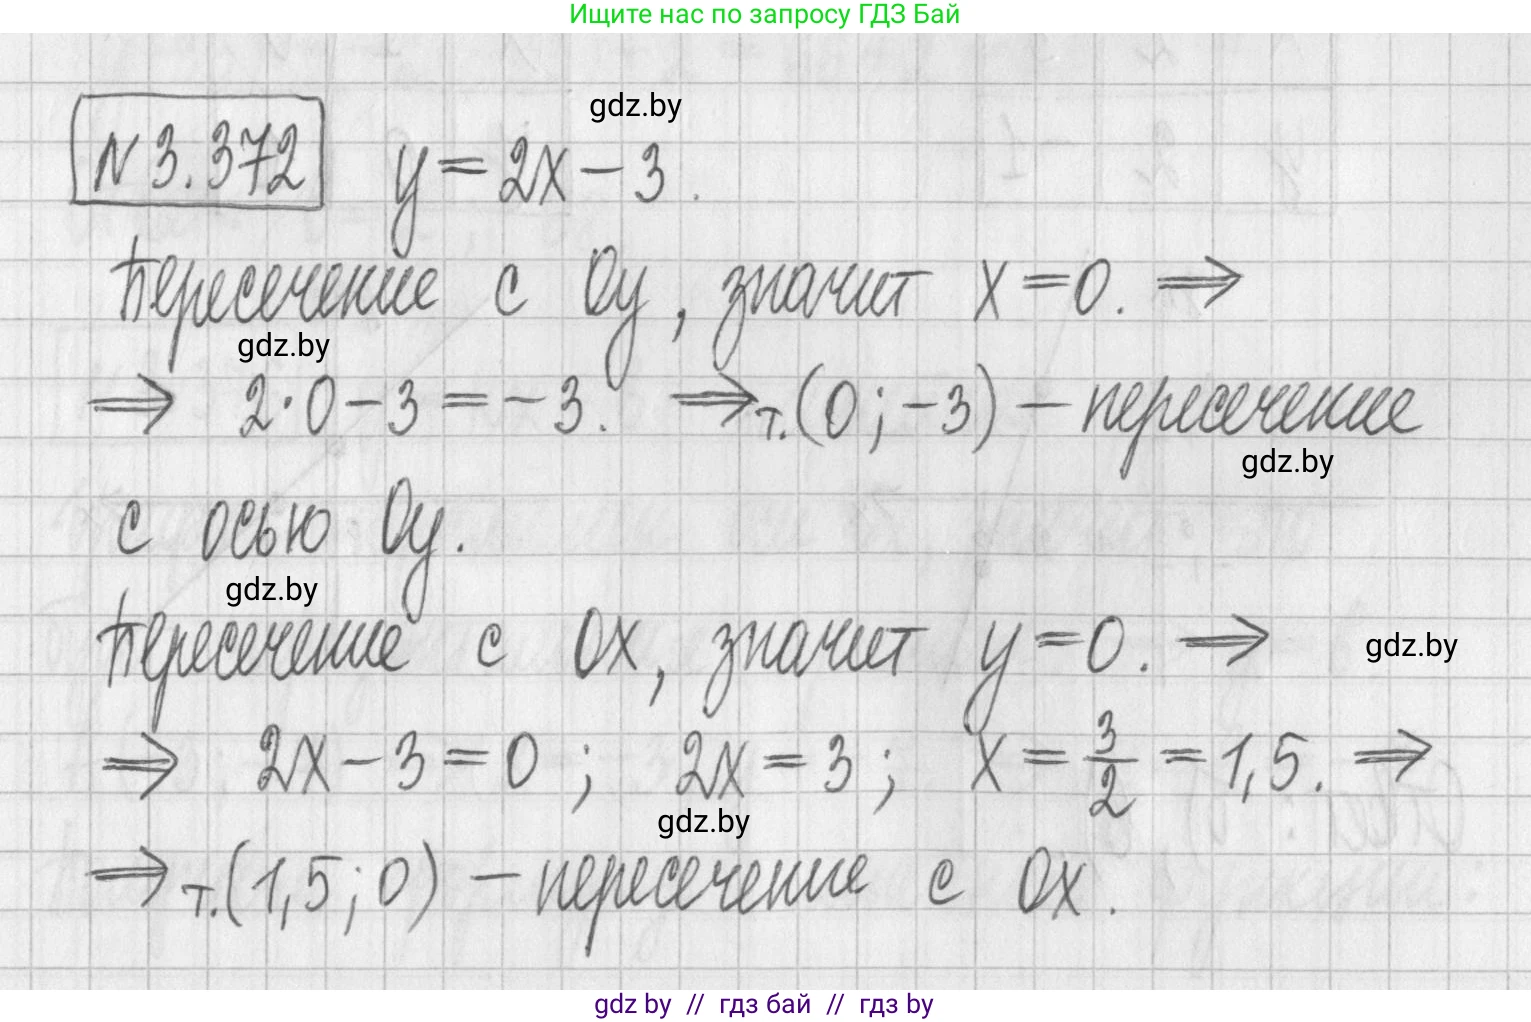 Ищите нас по запросу ГДЗ Бай
N 3.372 y = 2x - 3.
gdz.by
Пересечение с Oy, значит x = 0. ⇒
gdz.by
⇒ 2·0 - 3 = -3. ⇒ т.(0; -3) - пересечение
gdz.by
с осью Oy.
gdz.by
Пересечение с Ox, значит y = 0. ⇒
gdz.by
⇒ 2x - 3 = 0; 2x = 3; x = 3/2 = 1,5. ⇒
gdz.by
⇒ т.(1,5; 0) - пересечение с Ox.
gdz by // гдз бай // гдз by